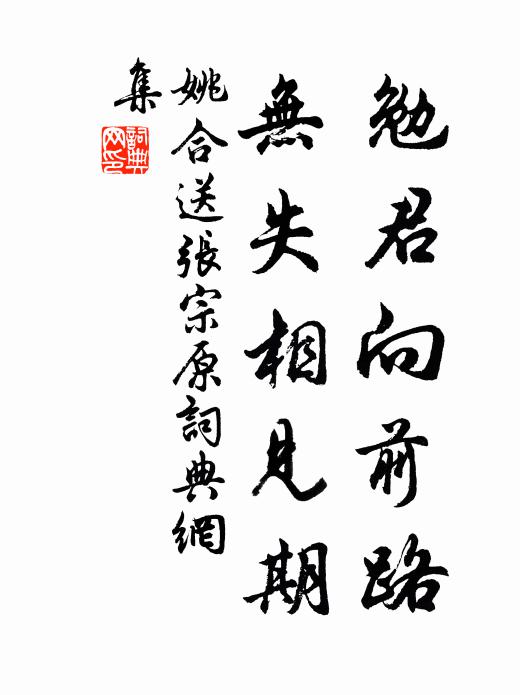 勉君向前路
無失相見期
姚合送張宗原詞典網
集
詞典網印